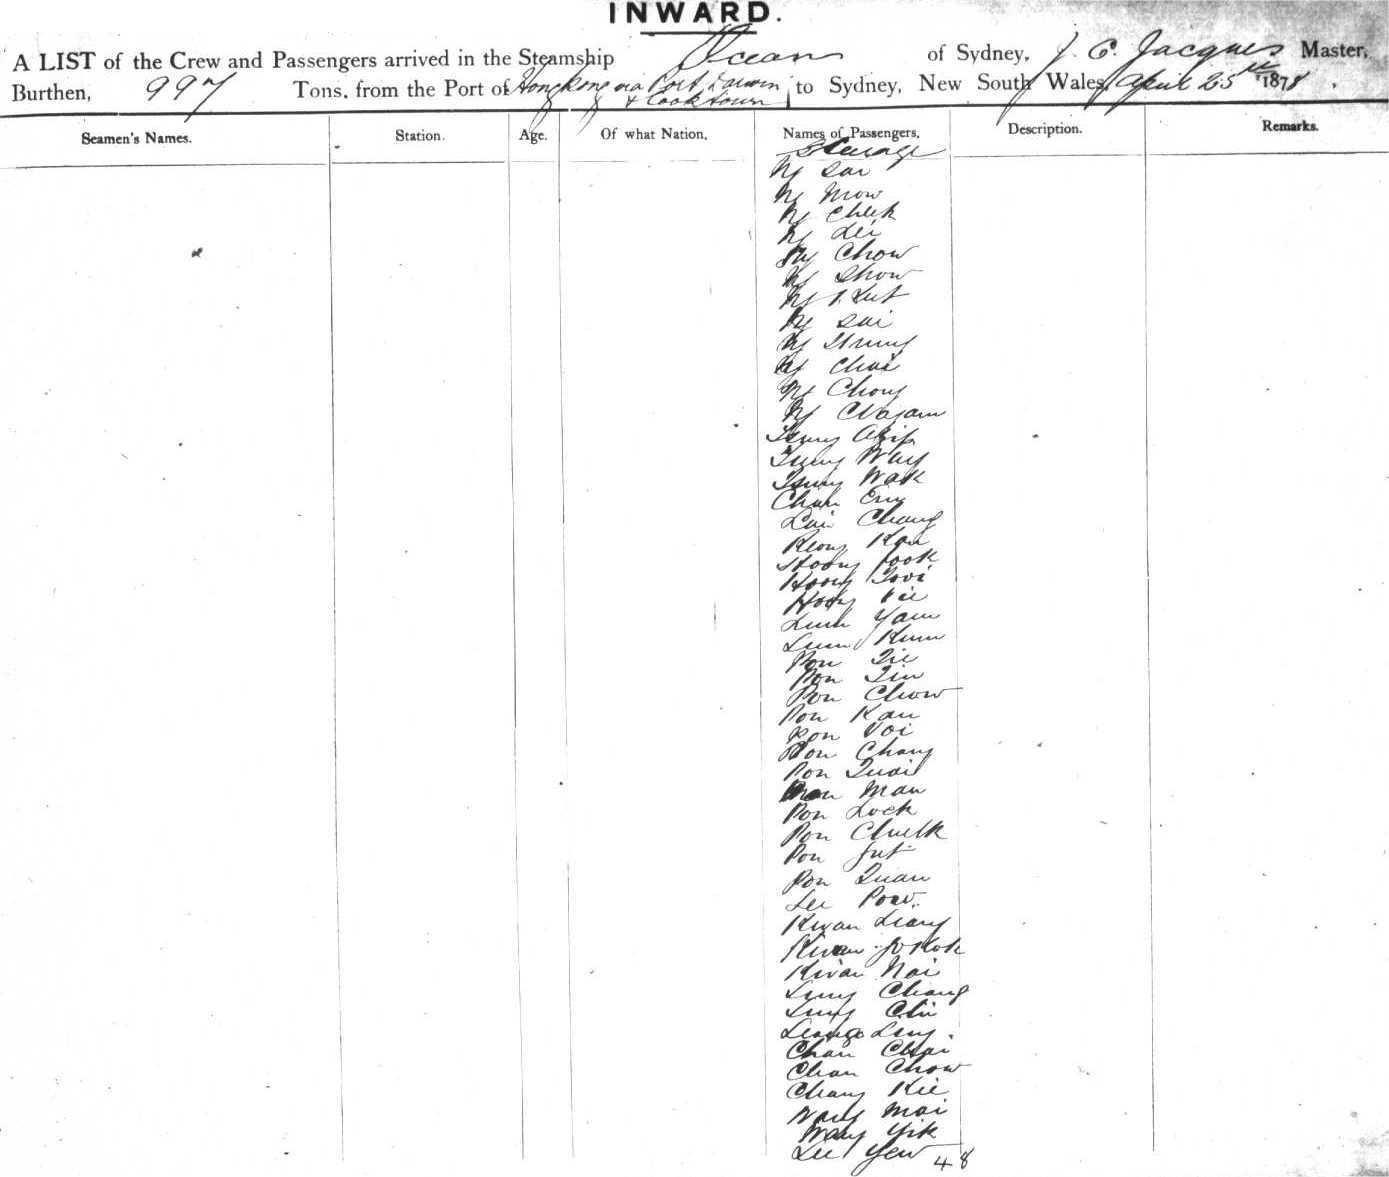 INWARD.
A LIST of the Crew and Passengers arrived in the Steamship Ocean of Sydney, J. C. Jacques Master,
Burthen, 997 Tons. from the Port of Hongkong via Port Darwin & Cooktown to Sydney, New South Wales, April 25th 1878.
Seamen's Names. Station. Age. Of what Nation. Names of Passengers. Description. Remarks.
Steerage
Ng Sar
Ng Mow
Ng Cheek
Ng Lei
Ng Chow
Ng Show
Ng Lut
Ng Sai
Ng
Ng Choi
Ng Chong
Ng
Way
Wak
Chan
Lai Chang
Kan
Hoong Fook
Hoong
Hoong
Yam
Lum Kum
Pon Tie
Pon Tin
Pon Chow
Pon Kan
Pon Voi
Pon Chang
Pon Quai
Pon Man
Pon Lock
Pon
Pon Jut
Pon Quan
Lee
Kwan Leang
Kwan
Kwan Nai
Lung Chang
Lung
Leong Ling
Chan Choi
Chan Chow
Chang Kie
Wang Moi
Wang Yik
Lee Yew 48